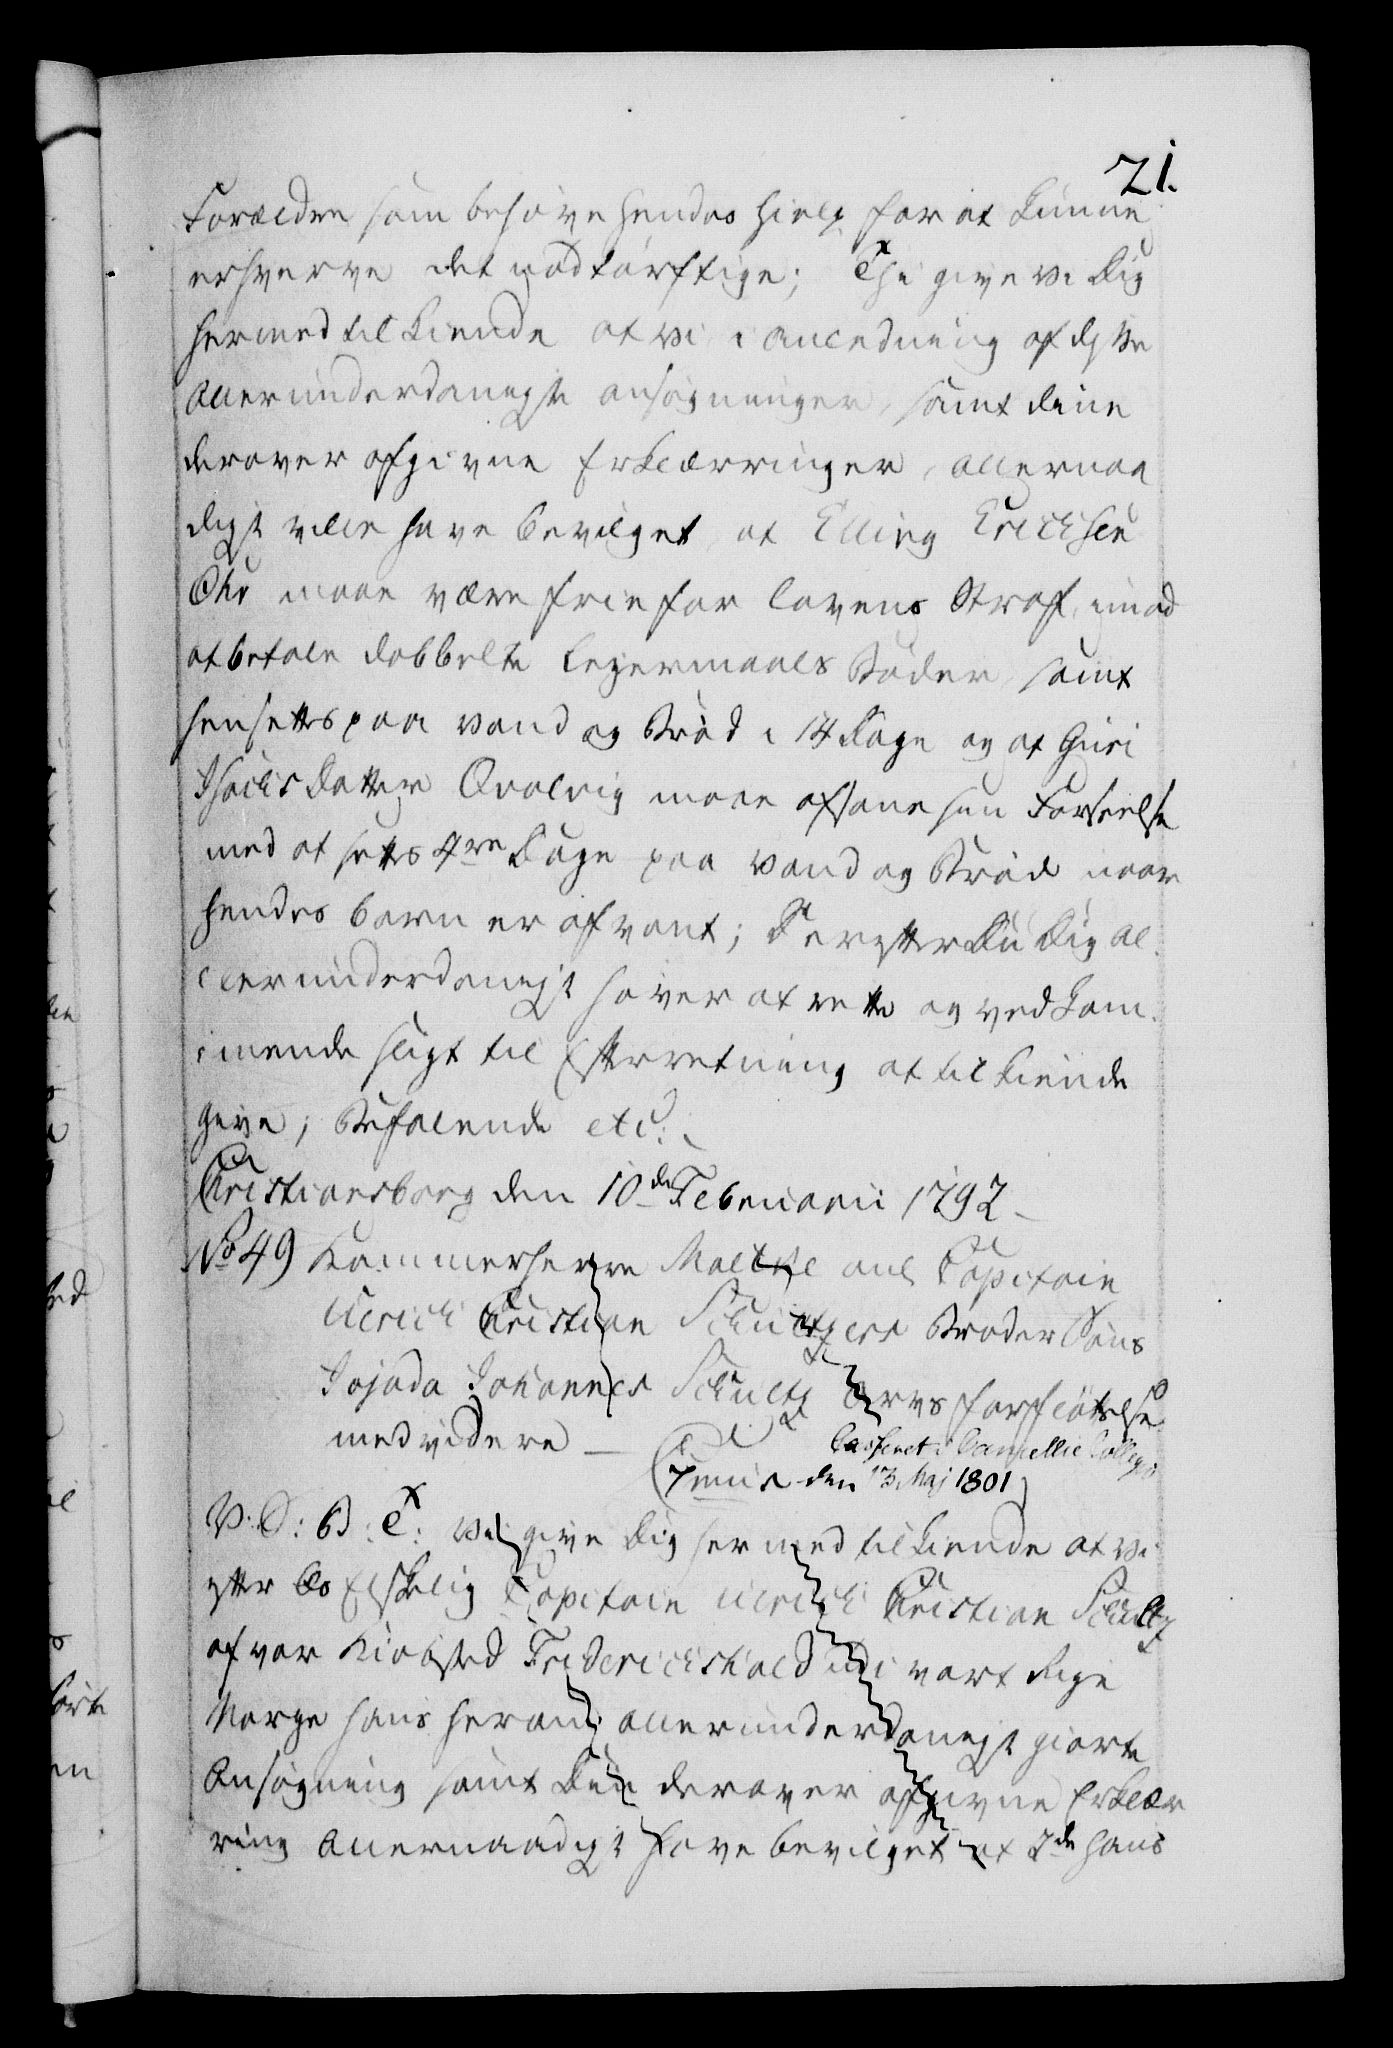 21.
Forældre som behøve hendes Hielp for at kunne
erhverve det nødtørftige; Thi give vi Dig
hermed tilkiende at vi i Anledning af disse
allerunderdanigste ansøgninger, samt dine
derover afgivne Erklærringer, allernaa
digst ville have bevilget at Elling Erichsen
Ohr maae være frie for Lovens Straf, imod
at betale dobbelte Leyermaals Bøder, samt
hensettes paa vand og Brød i 14 Dage og at Guri
Isachs Datter Qvalvig maae afsone sin Forseelse
med at settes 4re Dage paa vand og Brød naar
hendes barn er afvant; Derefter Du Dig al
lerunderdanigst haver at rette og vedkom
mende sligt til Efterretning at tilkiende
give; Befalende etc:
Christiansborg den 10de Februarii 1792
No 49 Kammerherre Moltke anl Capitain
Ulrich Christian Schultzes Broder Søns
Jojada Johannes Schultz Arvs forflöttelse
med videre
Casseret i Cancellie Collegio
den 13 Maj 1801
V: S: B: T: Vi give Dig hermed tilkiende at vi
efter Os Elskelig Capitain Ulrich Christian Schultz
af vor Kiöbsted Friderichshald udi vort Rige
Norge hans herom allerunderdanigst giorte
Ansøgning samt Din derover afgivne Erklær
ring Allernaadigst have bevilget at 2de hans